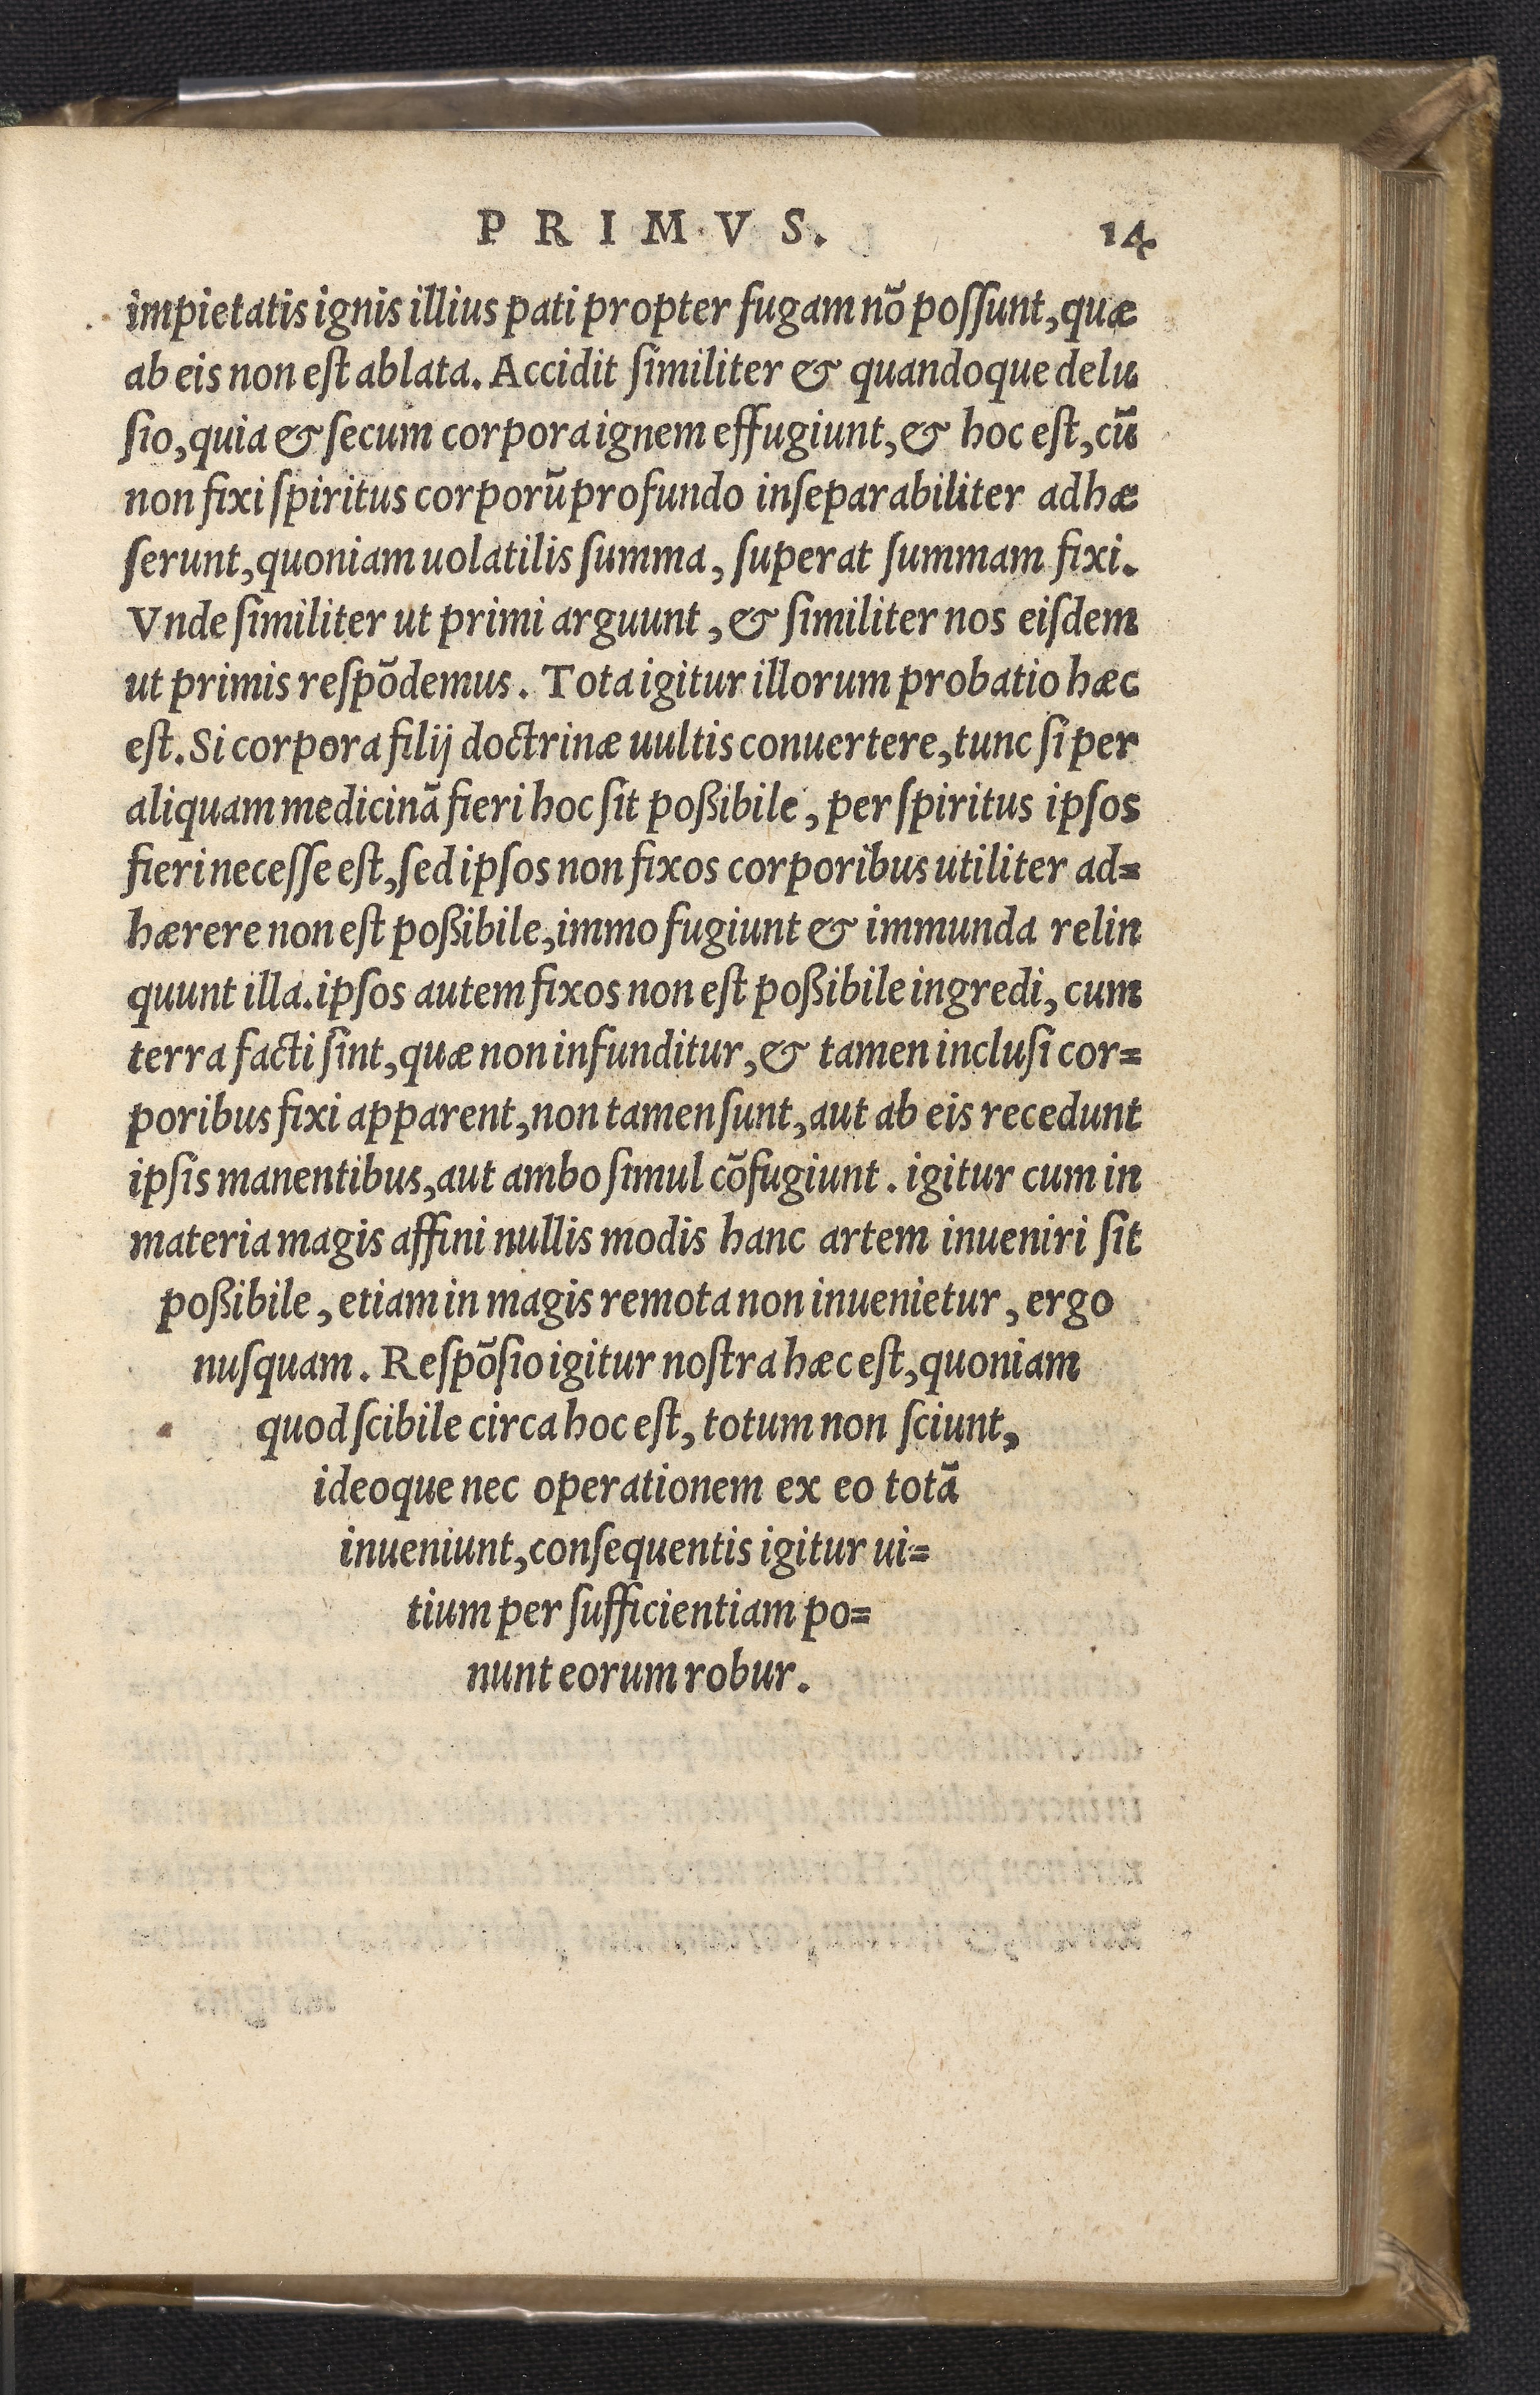 PRIMVS. 14
impietatis ignis illius pati propter fugam nõ poſſunt, quæ
ab eis non eſt ablata. Accidit ſimiliter & quandoque delu
ſio, quia & ſecum corpora ignem effugiunt, & hoc eſt, cũ
non fixi ſpiritus corporũ profundo inſeparabiliter adhæ
ſerunt, quoniam uolatilis ſumma, ſuperat ſummam fixi.
Vnde ſimiliter ut primi arguunt, & ſimiliter nos eiſdem
ut primis reſpõdemus. Tota igitur illorum probatio hæc
eſt. Si corpora filij doctrinæ uultis conuertere, tunc ſi per
aliquam medicinã fieri hoc ſit poßibile, per ſpiritus ipſos
fieri neceſſe eſt, ſed ipſos non fixos corporibus utiliter ad=
hærere non eſt poßibile, immo fugiunt & immunda relin
quunt illa. ipſos autem fixos non eſt poßibile ingredi, cum
terra facti ſint, quæ non infunditur, & tamen incluſi cor=
poribus fixi apparent, non tamen ſunt, aut ab eis recedunt
ipſis manentibus, aut ambo ſimul cõfugiunt. igitur cum in
materia magis affini nullis modis hanc artem inueniri ſit
poßibile, etiam in magis remota non inuenietur, ergo
nuſquam. Reſpõſio igitur noſtra hæc eſt, quoniam
quod ſcibile circa hoc eſt, totum non ſciunt,
ideoque nec operationem ex eo totã
inueniunt, conſequentis igitur ui=
tium per ſufficientiam po=
nunt eorum robur.